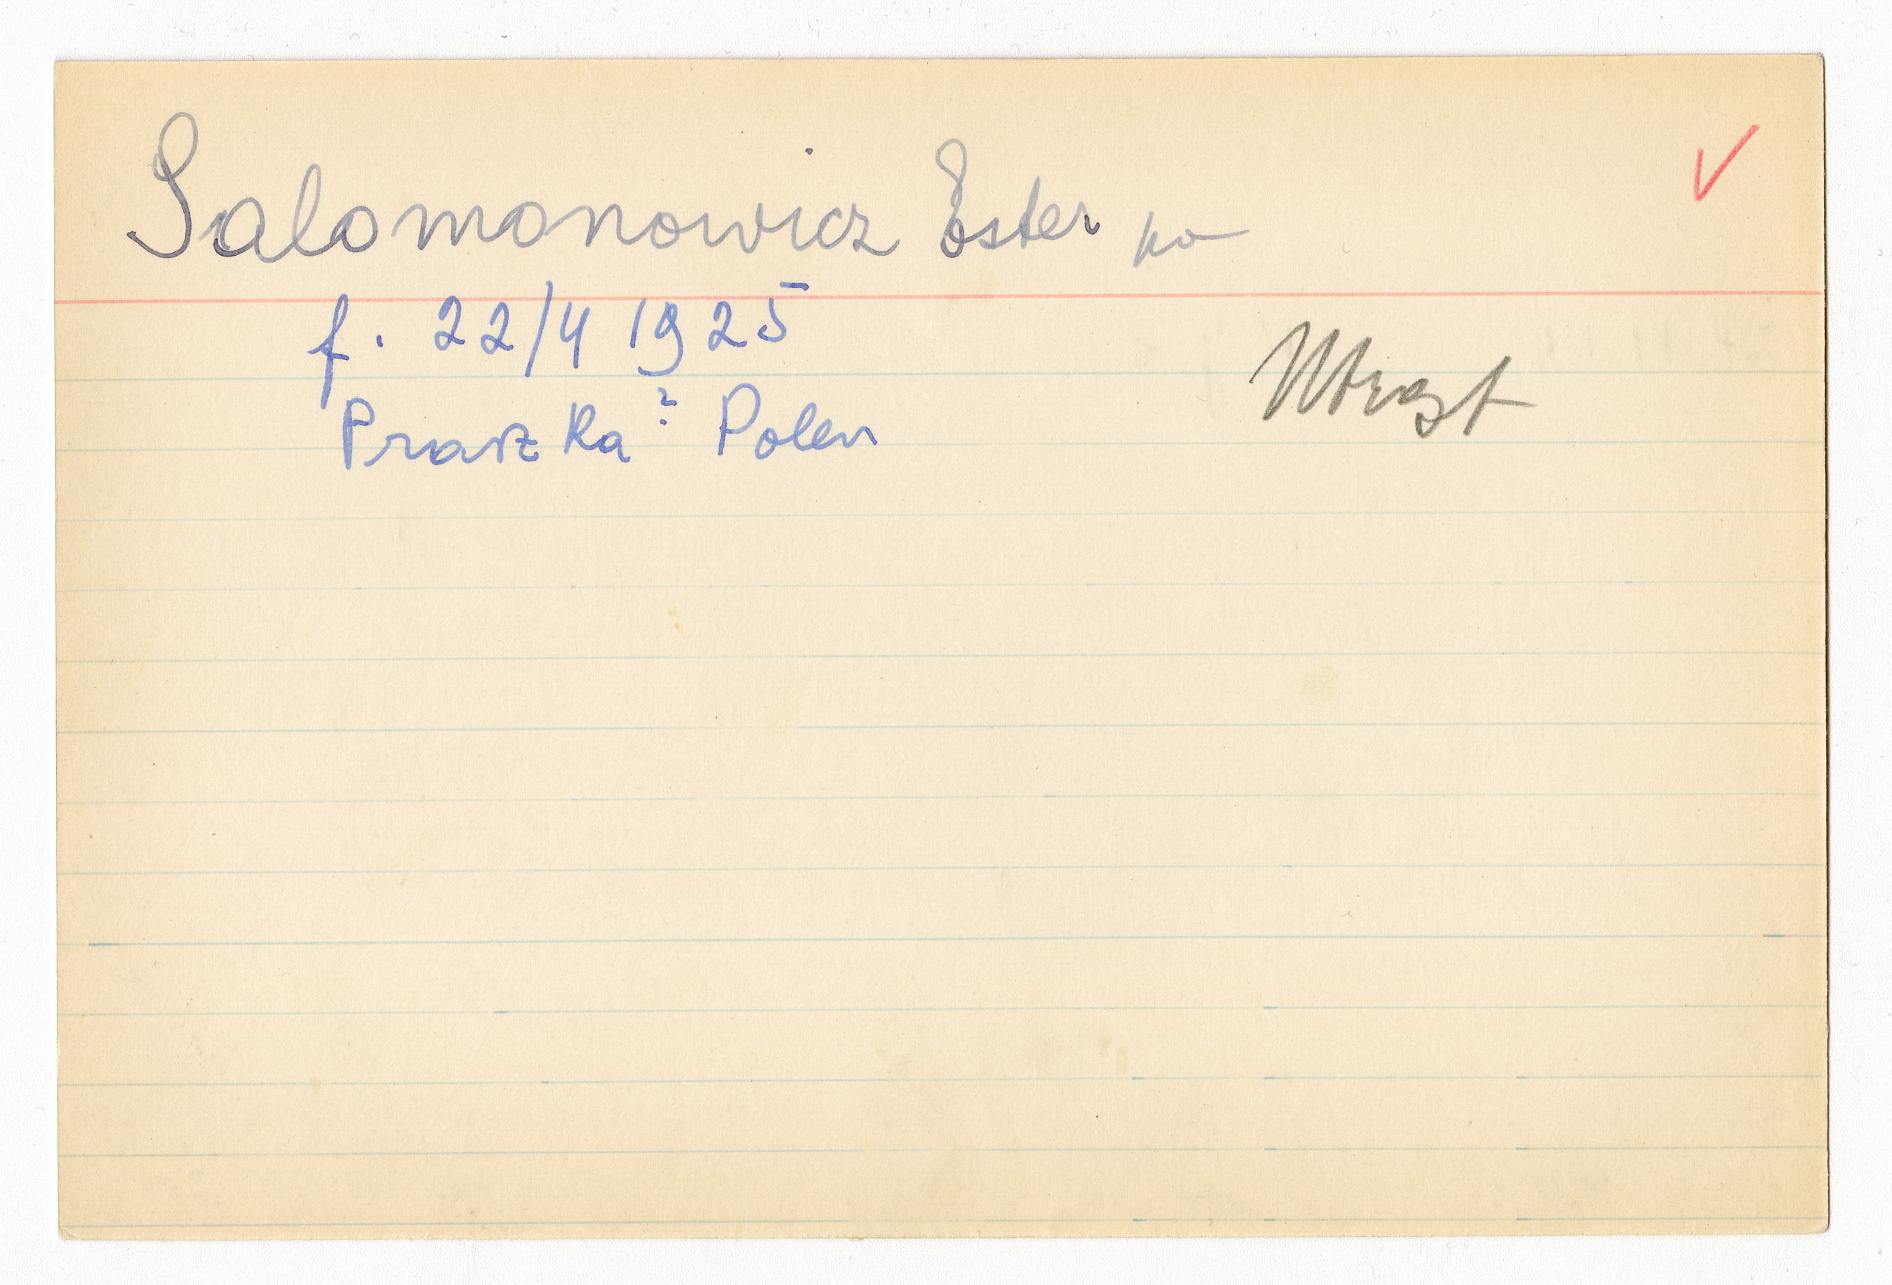 Salomonowicz Ester po
f. 22/4 1925
Praszka? Polen
Utrest